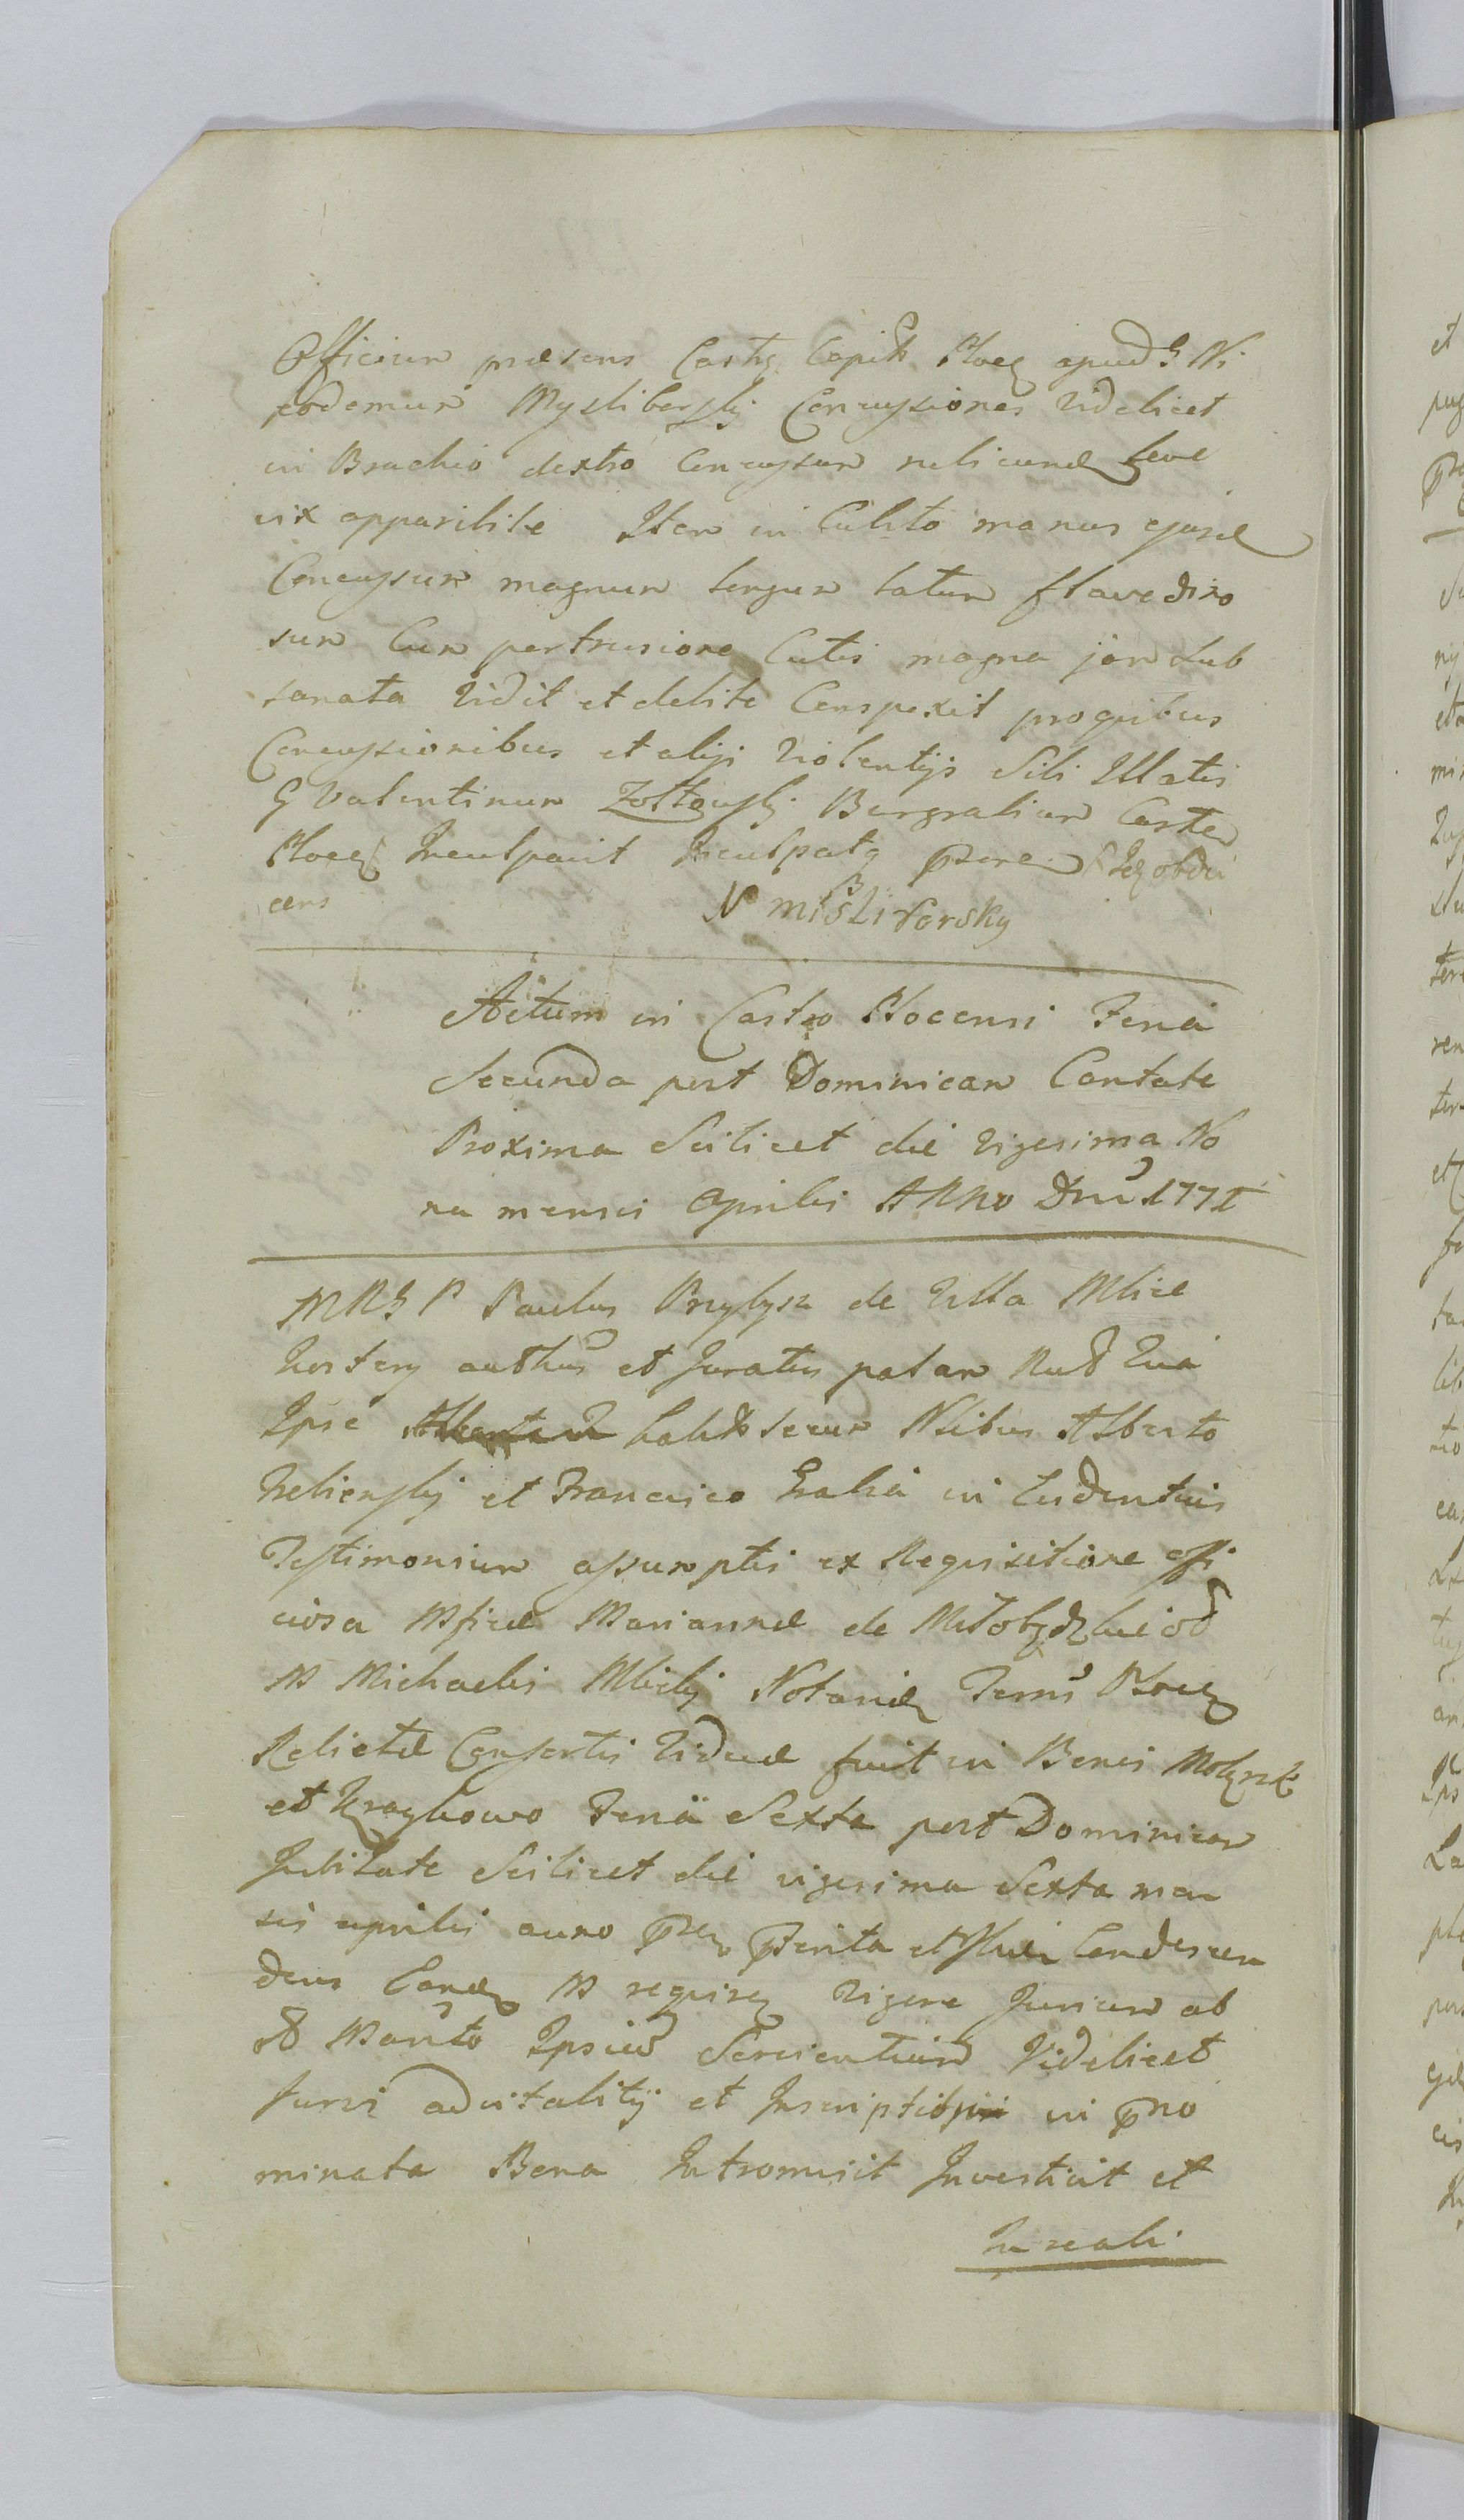 Officium præsens Castr Capitt Plocen apud G Ni
codemum Mysliborski Concussiones Videlicet
in Brachio dextro Concussum rubicund leve
vix apparibile Item in Cubito manus ejusd
Concussum magnum longum latum flavedino
sum Cum pertrusione Cutis magna jam sub
sanata Vidit et debite Conspexit pro quibus
Concussionibus et alijs Violentijs Sibi Illatis
G Valentinum Zołtowski Burgrabium Castren
Plocen Inculpavit Inculpatq
cens N Misliborsky
Actum in Castro Plocensi Feria
Secunda post Dominicam Cantate
Proxima Scilicet die Vigesima No
na mensis Aprilis Anno Dni 1771
MRSP Paulus de Villa Mlice
authus et Juratus palam Rud Quia
Ipse secum Nlibus Alberto
et Francisco in Evidentius
Testimonium assumptis ex Requisitione offi
ciosa Mficæ Mariannæ de
M Michaelis Mlicki Notarii Terris Plocen
Relictæ Consortis Viduæ fuit in Bonis
et Feria Sexta post Dominicam
Jubilate Scilicet die vigesima Sexta men
sis aprilis anno condescen
dens Eand M requiren Vigore Jurium ab
od Marito Ipsius Servientium Videlicet
Juris advitalitij et in prno
minata Bona Intromisit Investivit et
In reali